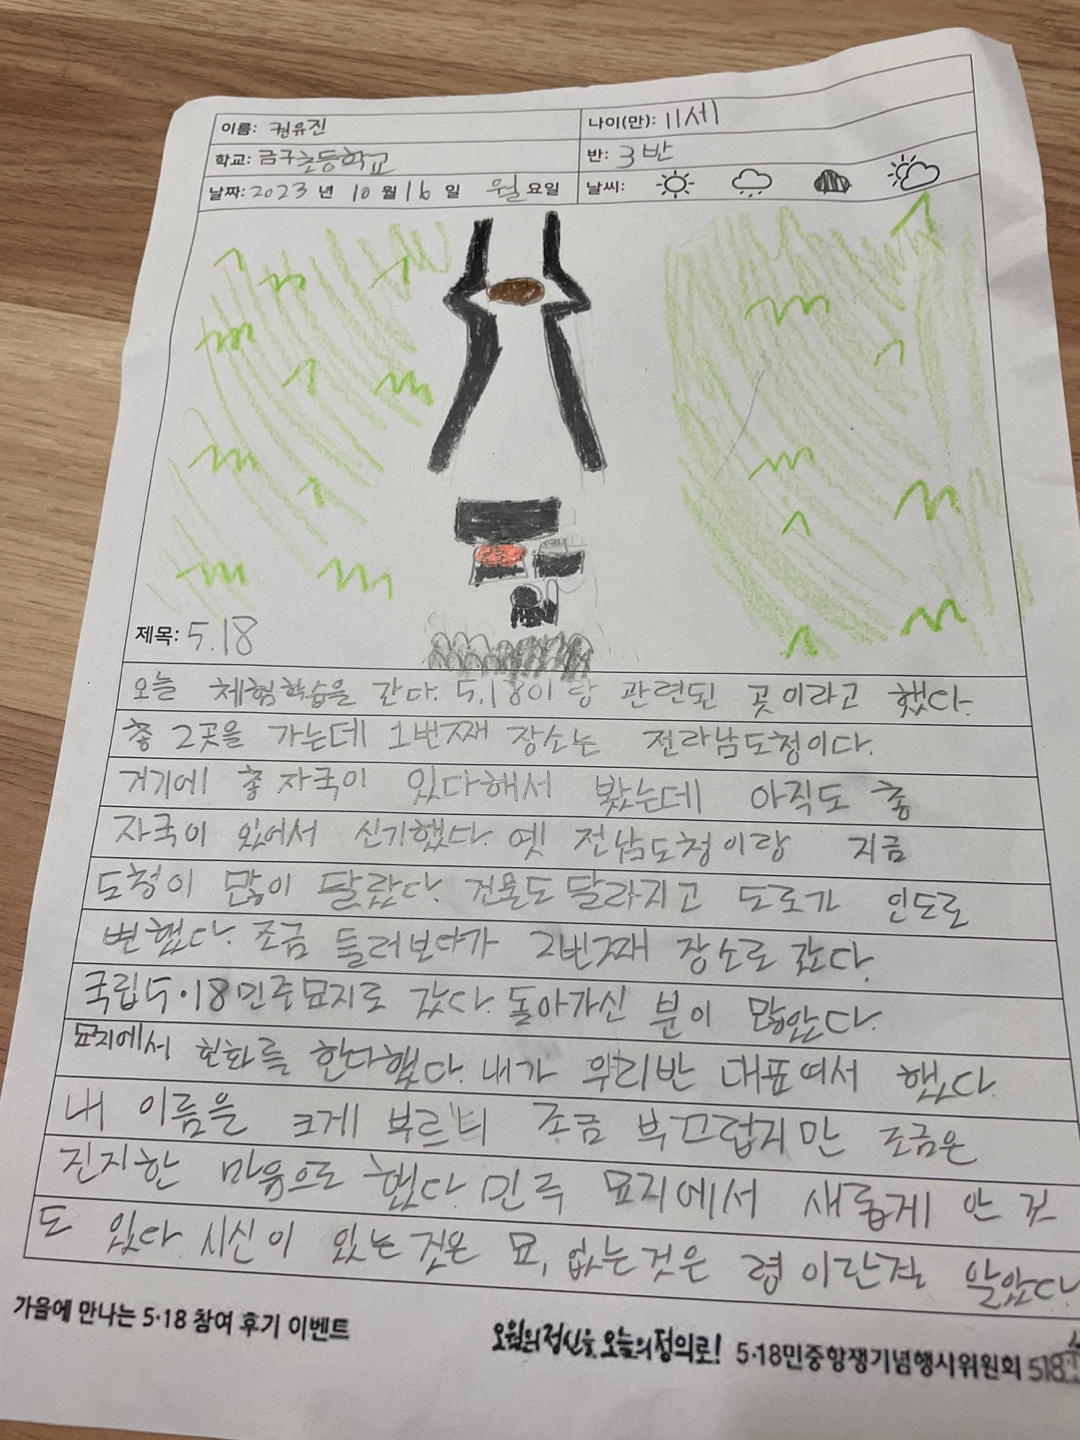 이름: 권유진 나이(만): 11세
학교: 금구초등학교 반: 3반
날짜: 2023 년 10 월 16 일 월요일 날씨:
제목: 5.18
오늘 체험학습을 간다. 5.18이 랑 관련된 곳이라고 했다.
총 2곳을 가는데 1번째 장소는 전라남도청이다.
거기에 총 자국이 있다해서 봤는데 아직도 총
자국이 있어서 신기했다. 옛 전남도청이랑 지금
도청이 많이 달랐다. 건물도 달라지고 도로가 인도로
변했다. 조금 둘러보다가 2번째 장소로 갔다.
국립5·18민주묘지로 갔다. 돌아가신 분이 많았다.
묘지에서 헌화를 한다했다. 내가 우리반 대표여서 했다.
내 이름을 크게 부르니 조금 부끄럽지만 조금은
진지한 마음으로 했다. 민주 묘지에서 새롭게 안 것
도 있다 시신이 있는것은 묘, 없는것은 령 이란걸 알았다.
가을에 만나는 5·18 참여 후기 이벤트
오월의 정신을 오늘의 정의로! 5·18민중항쟁기념행사위원회 518